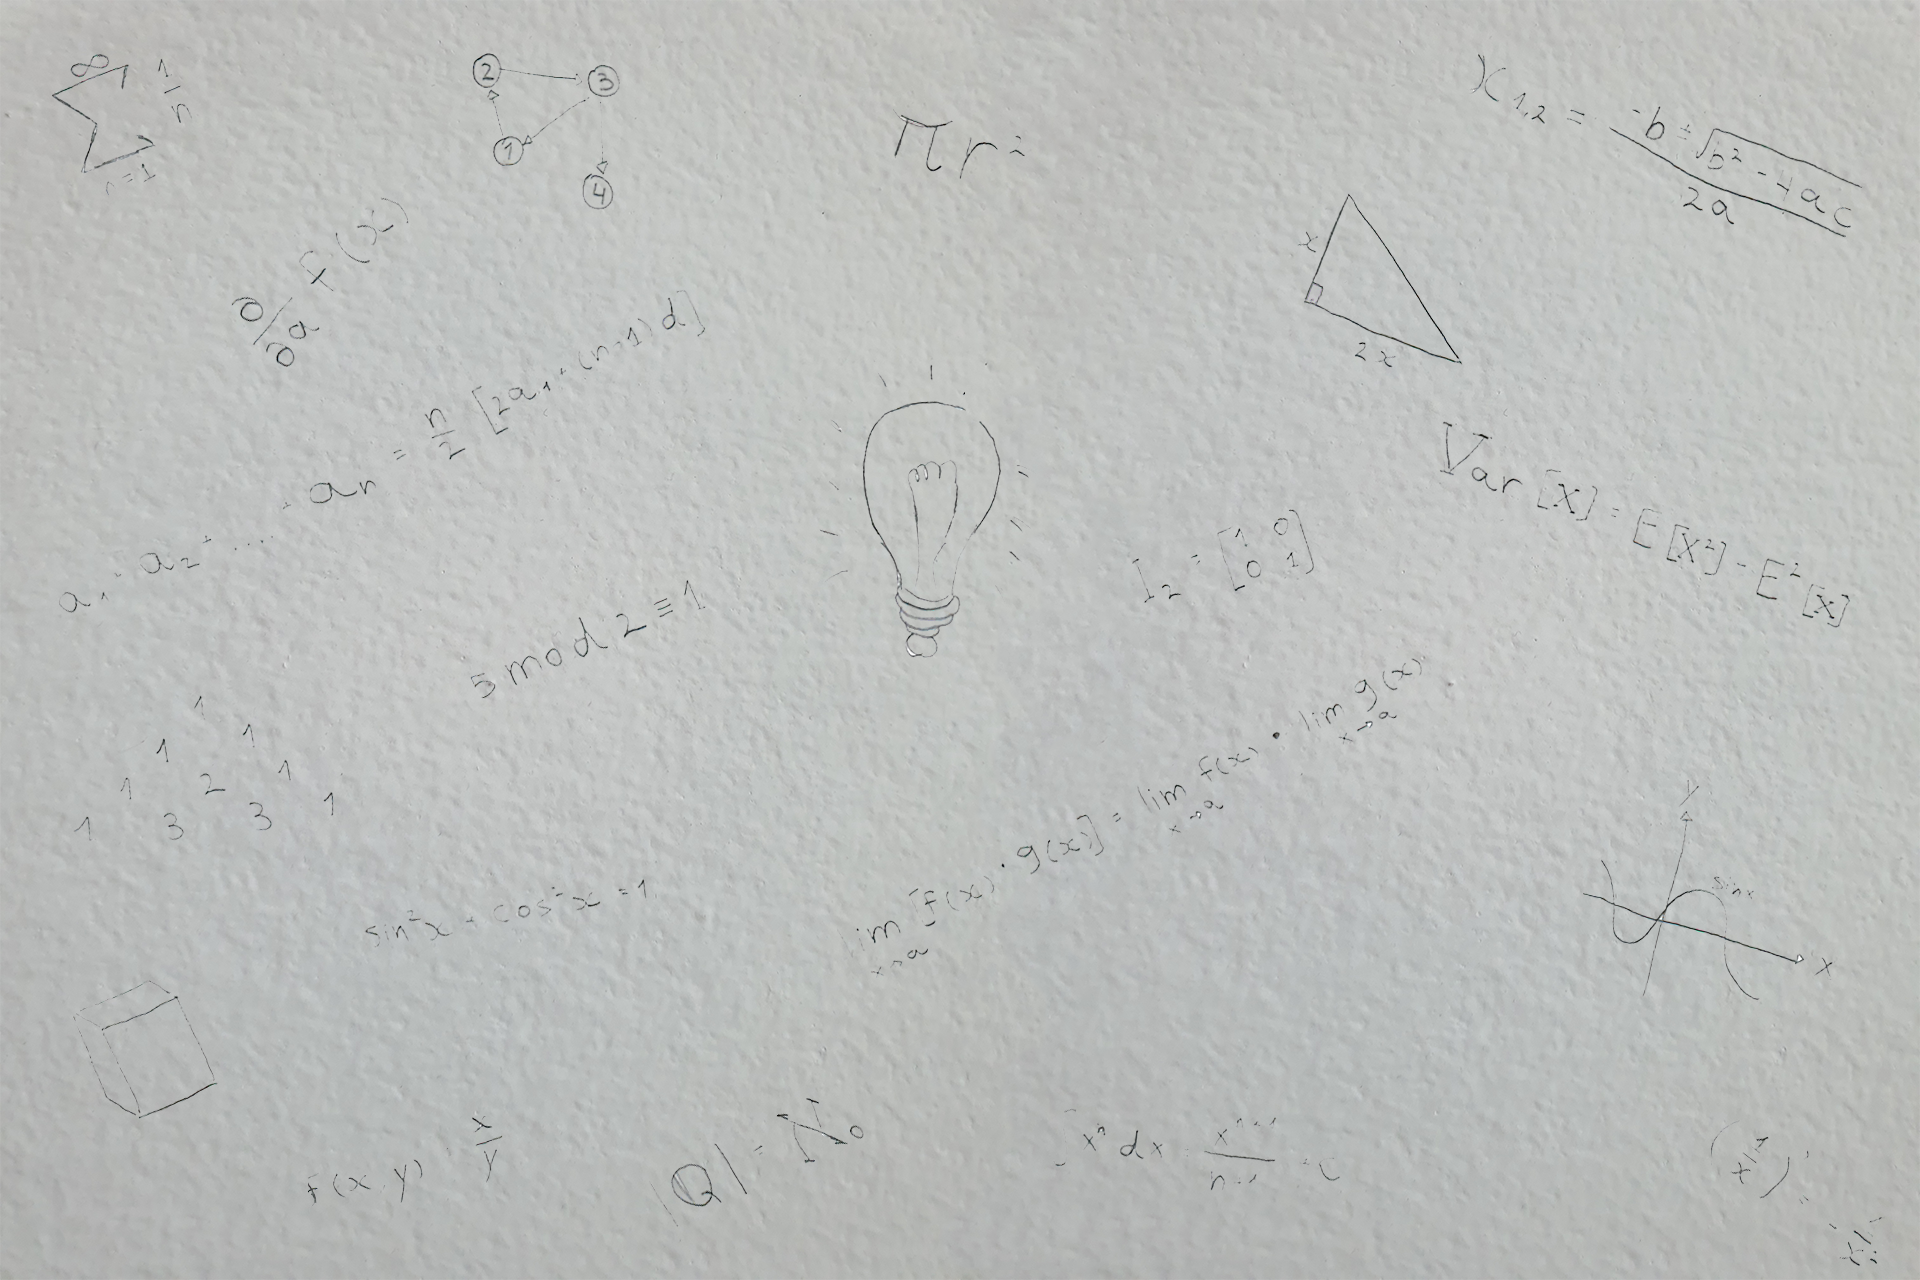 ∞
∑ 1/n
n=1
2 3
1
4
πr²
x₁,₂ = (-b ± √(b² - 4ac)) / 2a
∂/∂a f(x)
x
2x
a₁ + a₂ + .... + aₙ = n/2 [2a₁ + (n-1)d]
Var[X] = E[X²] - E²[X]
I₂ = [1 0
0 1]
5 mod 2 ≡ 1
1
1 1
1 2 1
1 3 3 1
lim [f(x) · g(x)] = lim f(x) · lim g(x)
x→a x→a x→a
sin²x + cos²x = 1
y
sin x
x
f(x,y) = x/y
|Q| = ℵ₀
xⁿ dx xⁿ⁺¹/n+1 + C
(1/x)' =